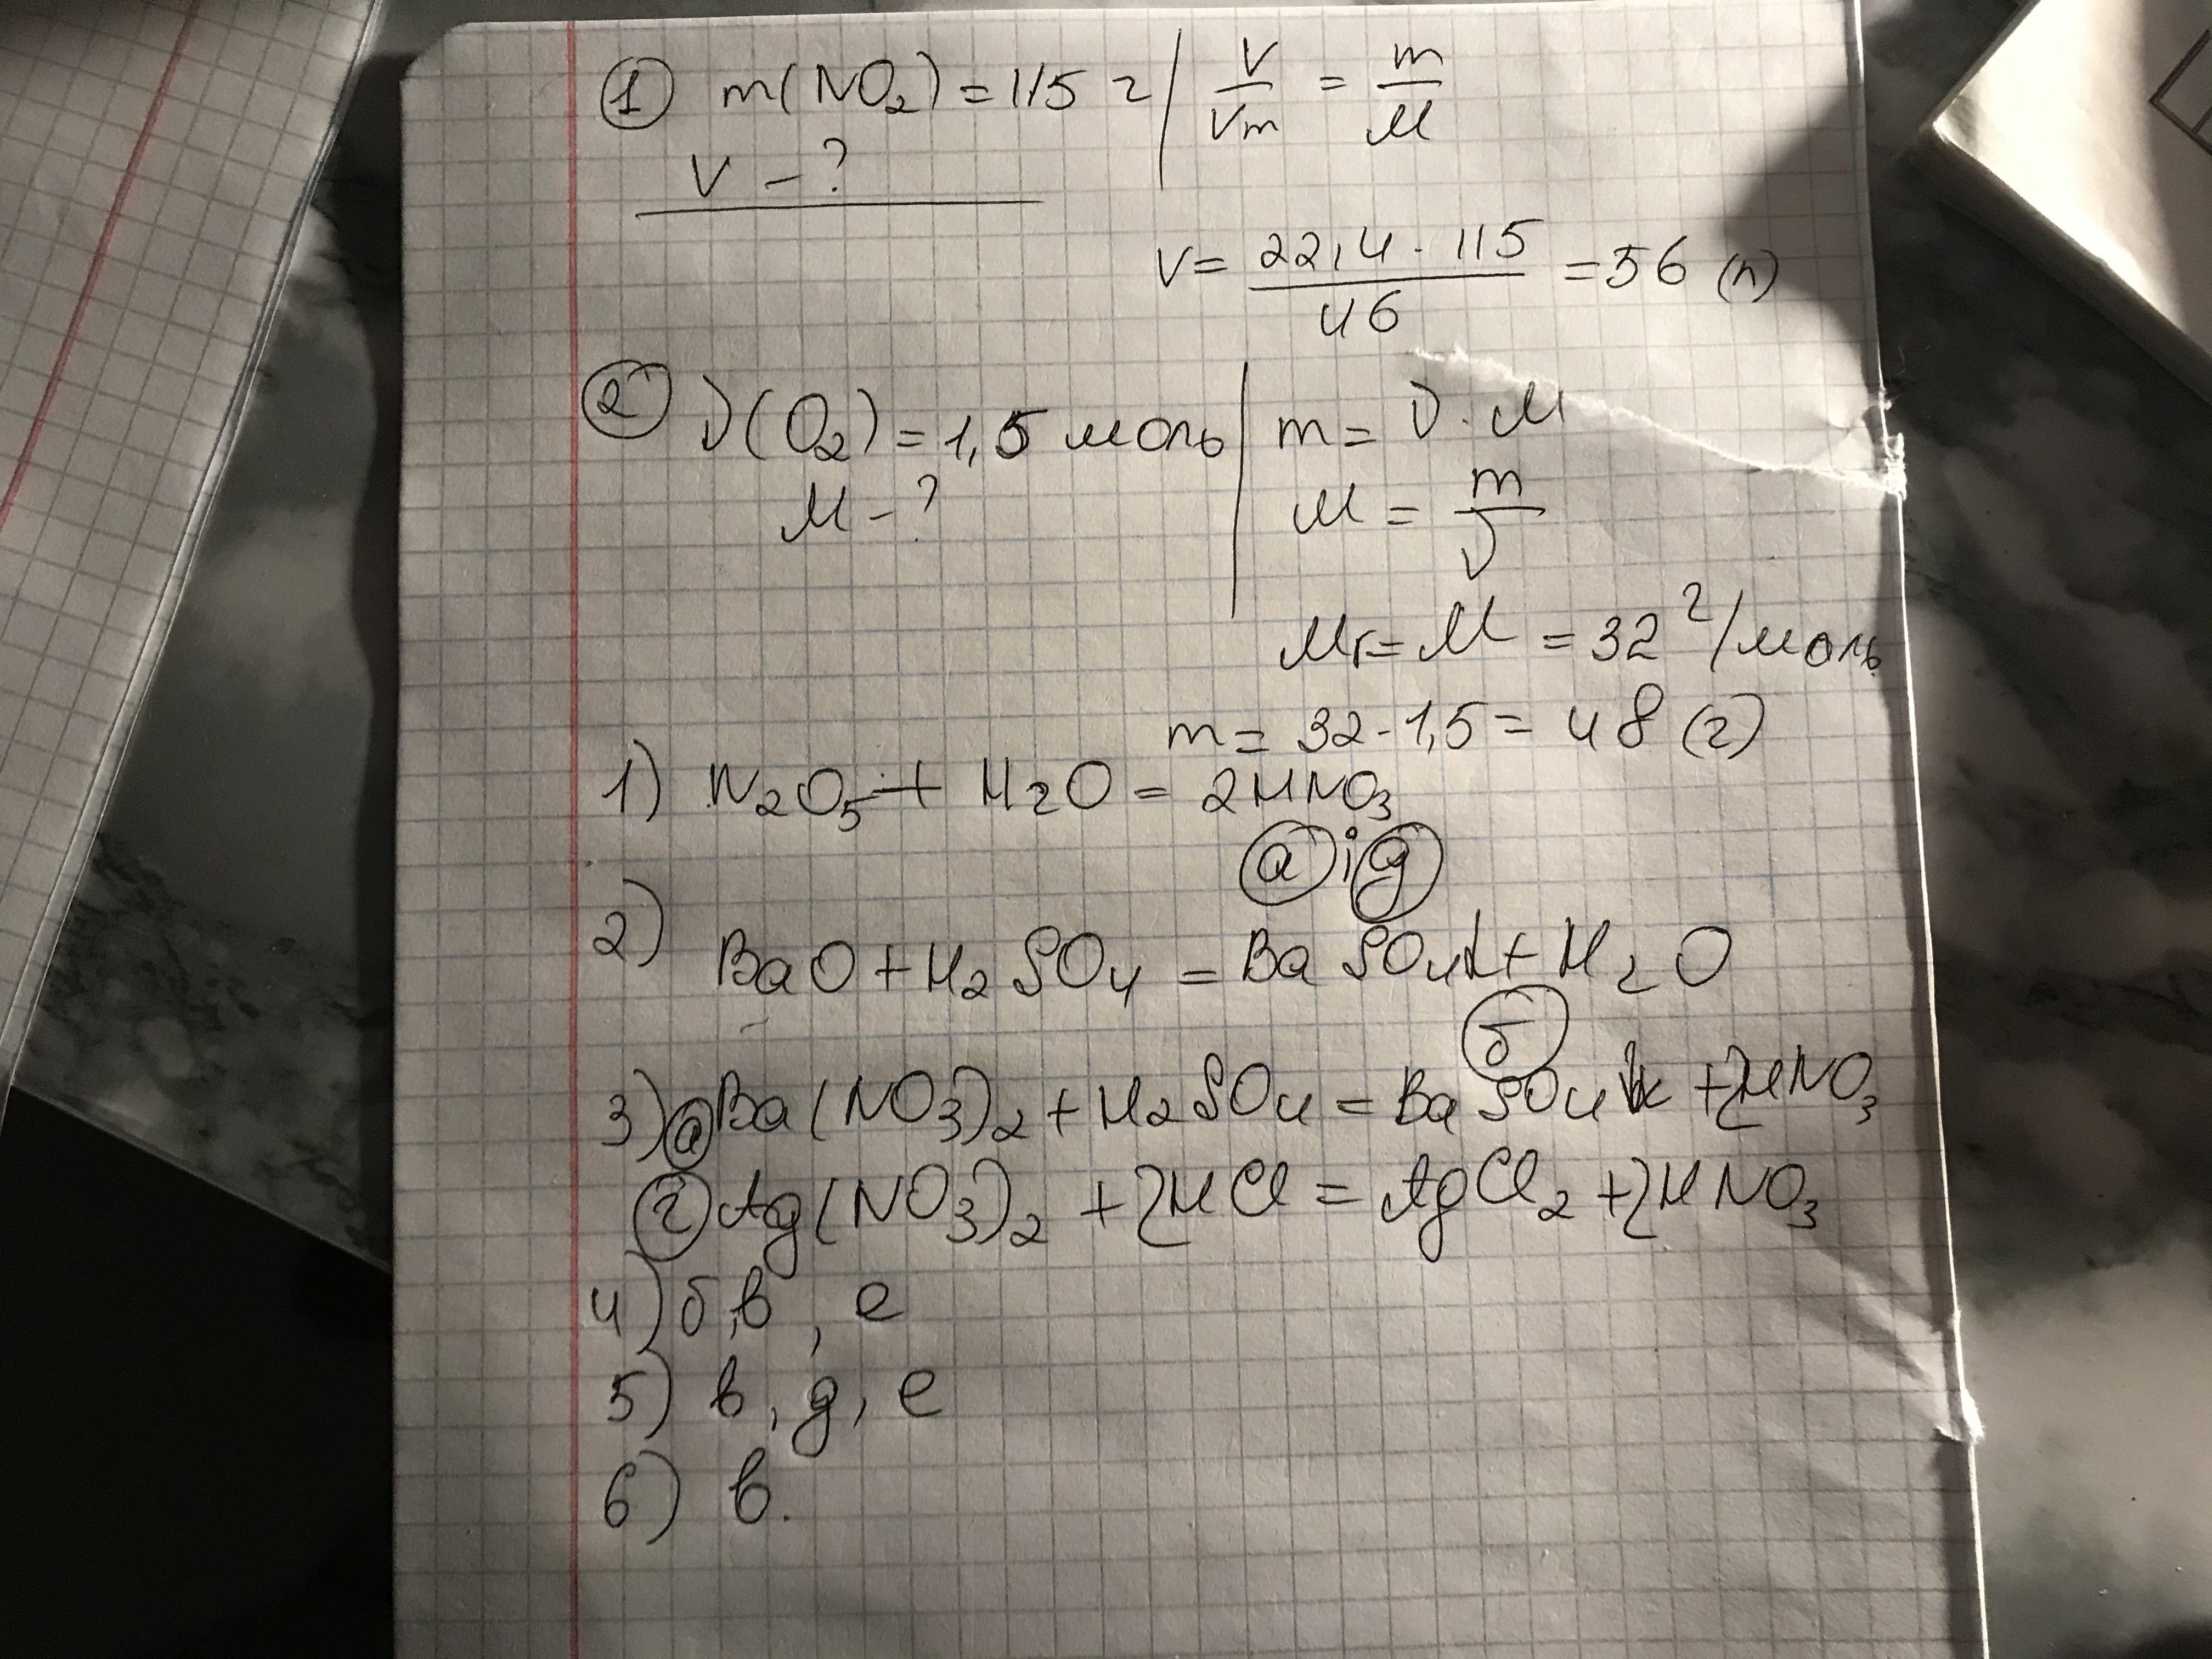 ① m(NO₂) = 115 г | V/Vm = m/M
V – ?
V = 22,4 · 115 / 46 = 56 (л)
② ν(O₂) = 1,5 моль | m = ν · M
M – ? | M = m/ν
Mr = M = 32 г/моль
m = 32 · 1,5 = 48 (г)
1) N₂O₅ + H₂O = 2HNO₃
ⓐ i ⓖ
2) BaO + H₂SO₄ = BaSO₄↓ + H₂O
ⓑ б
3) ⓐ Ba(NO₃)₂ + H₂SO₄ = BaSO₄↓ + 2HNO₃
г Ag(NO₃)₂ + 2HCl = AgCl₂ + 2HNO₃
4) б, в, е
5) в, g, е
6) в.